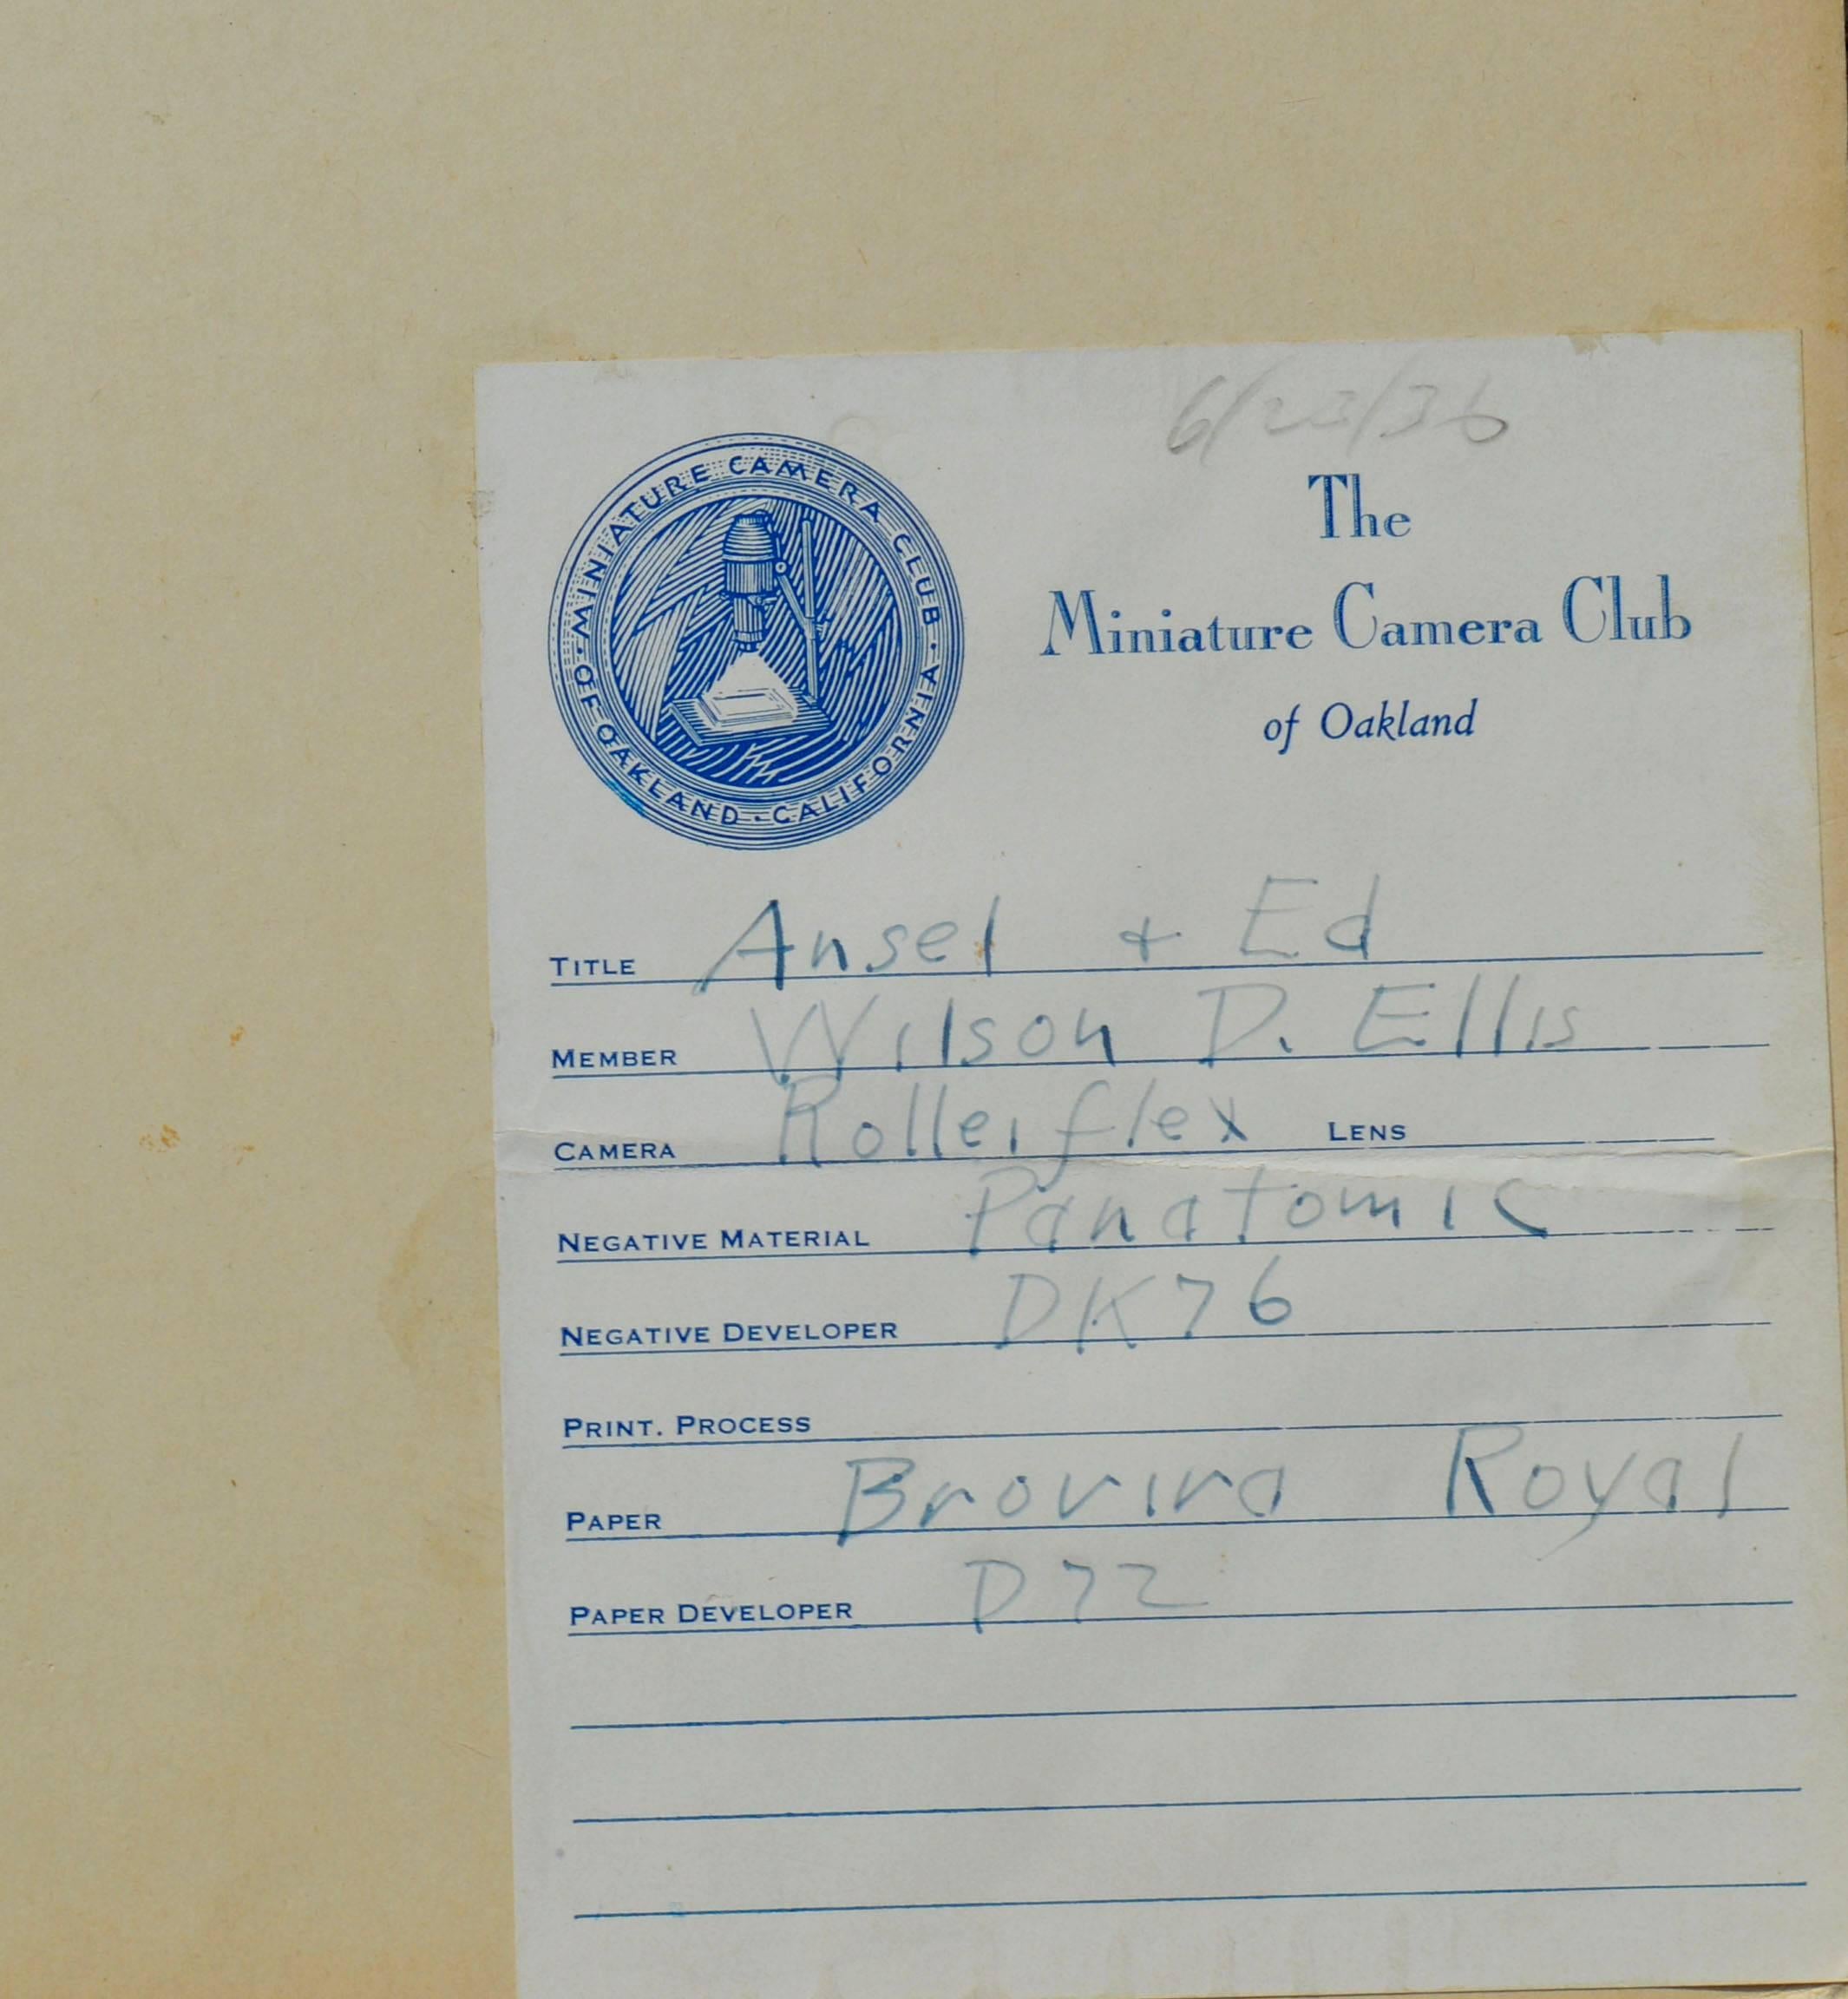 6/23/36
MINIATURE CAMERA CLUB · OF OAKLAND · CALIFORNIA ·
The
Miniature Camera Club
of Oakland
TITLE Ansel + Ed
MEMBER Wilson D. Ellis
CAMERA Rolleiflex LENS
NEGATIVE MATERIAL Panatomic
NEGATIVE DEVELOPER DK76
PRINT. PROCESS
PAPER Brovira Royal
PAPER DEVELOPER D72